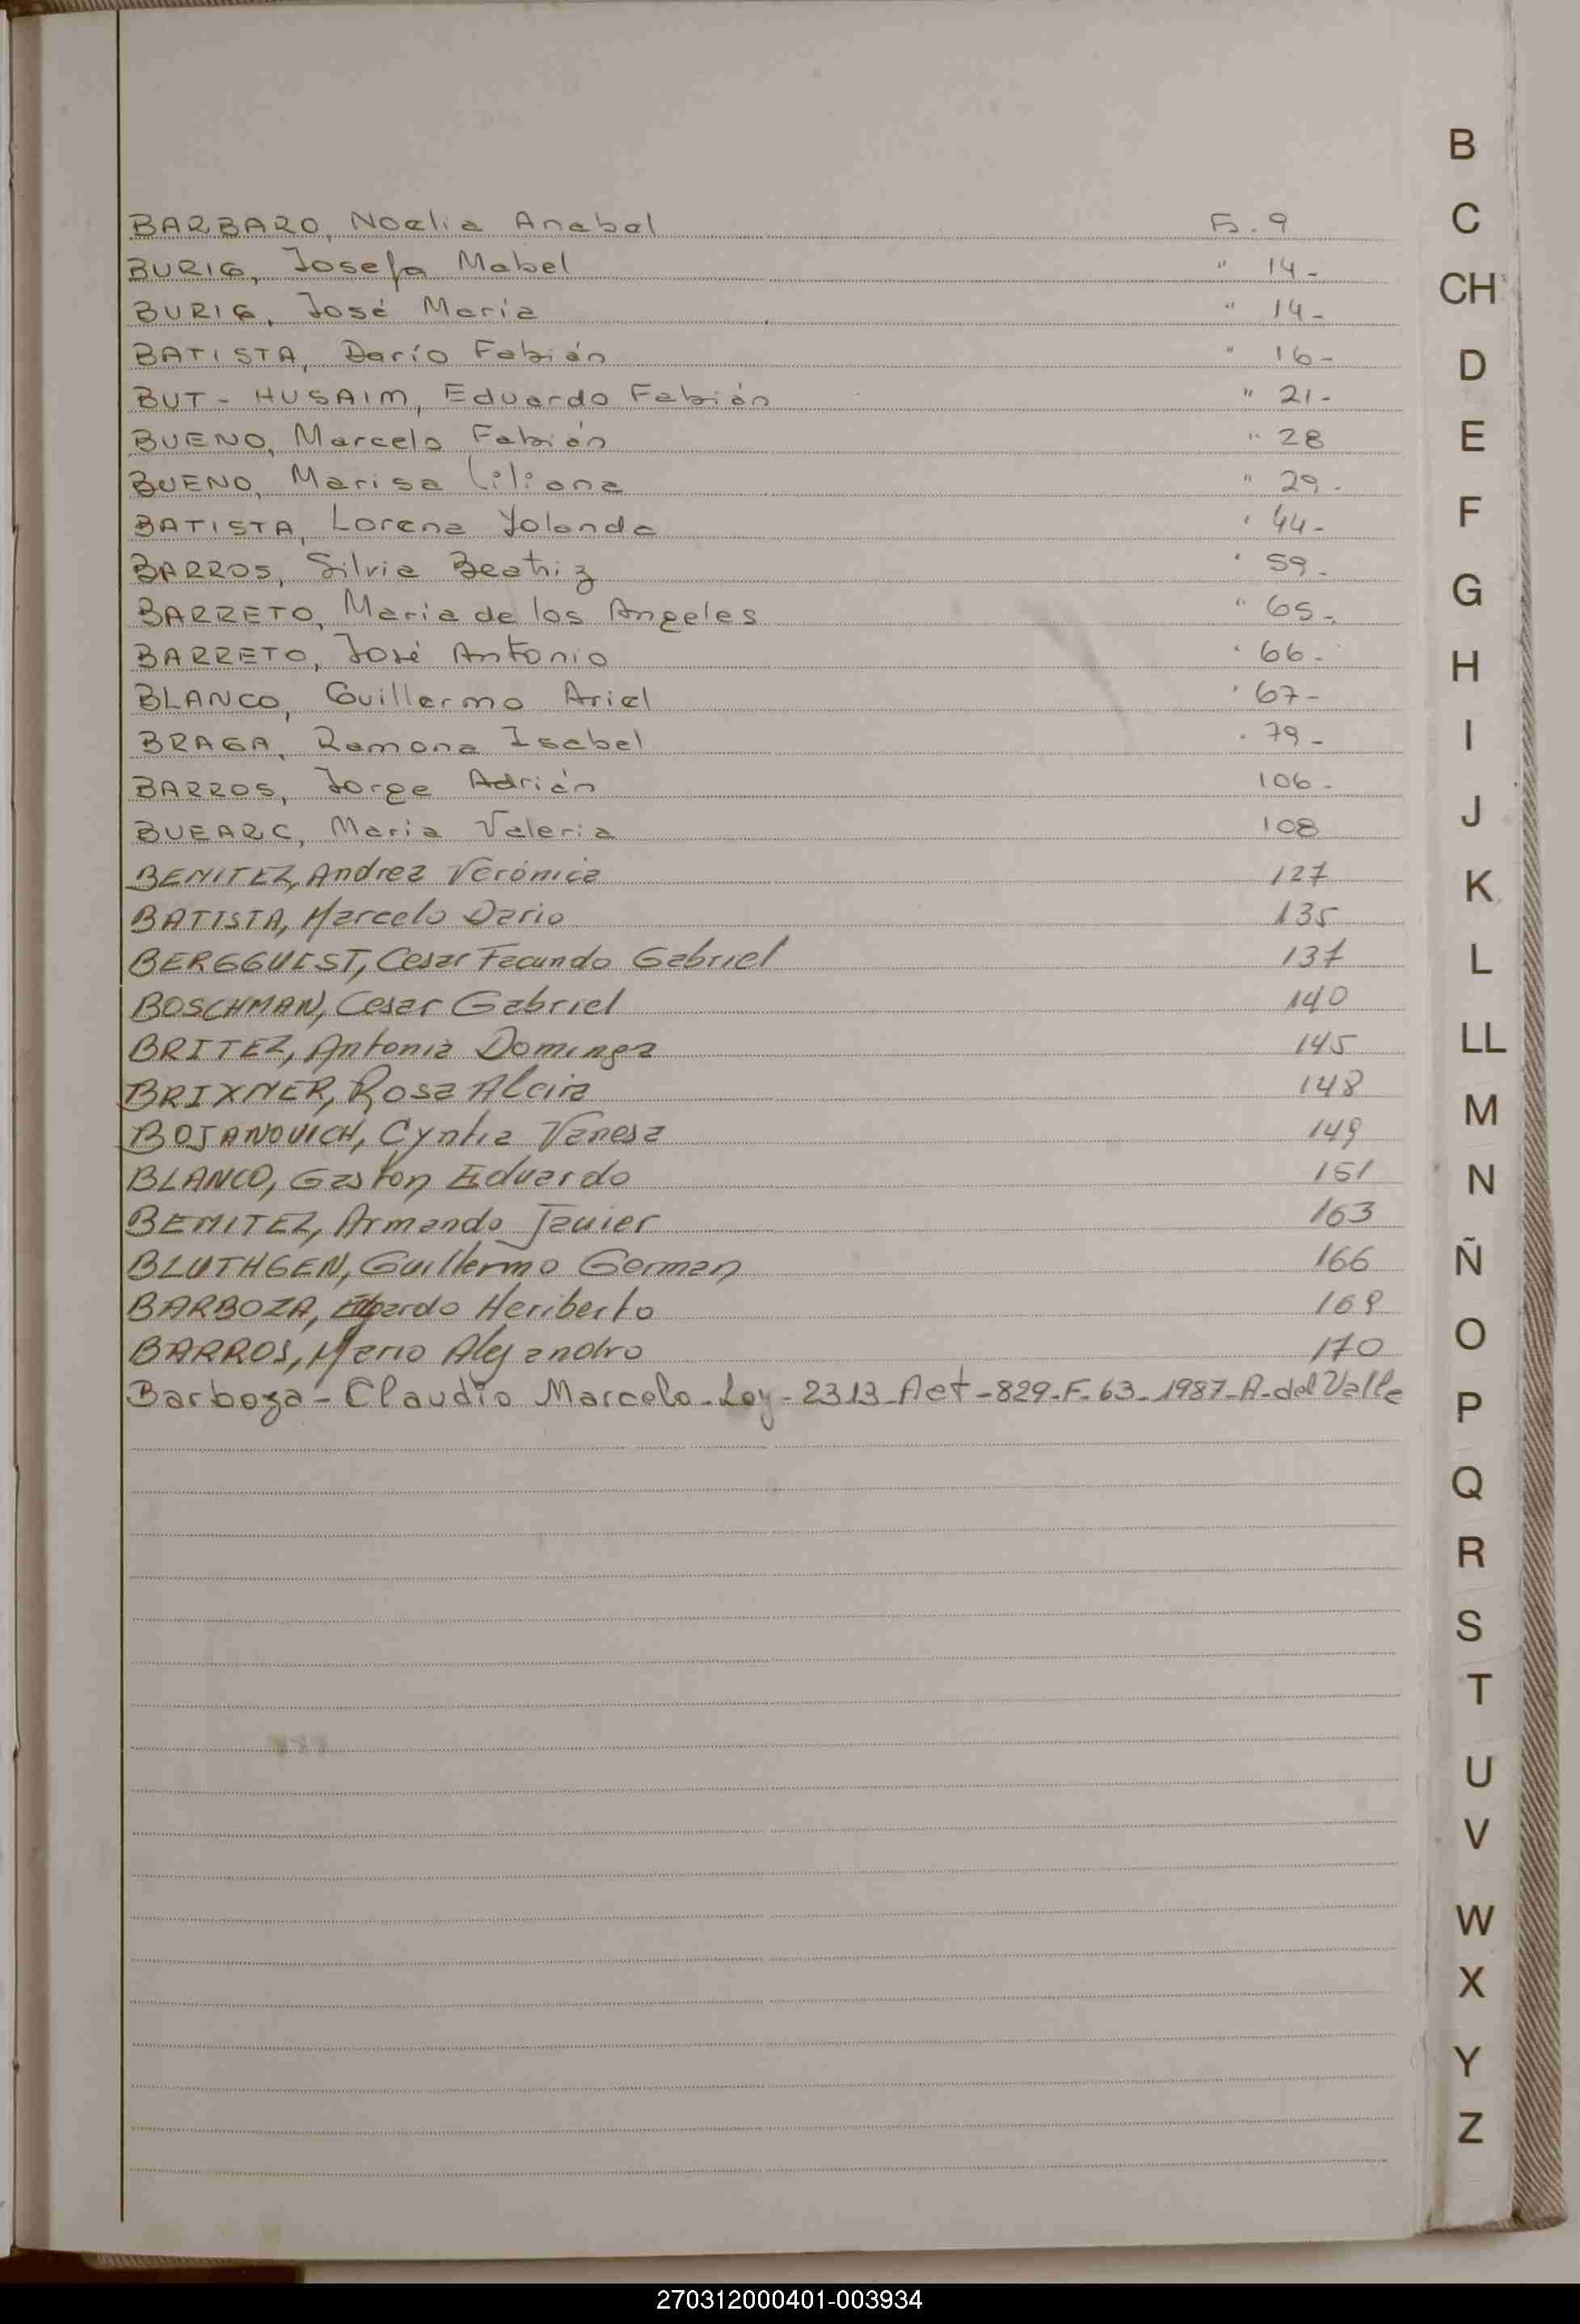 BARBARO, Noelia Anabel Fs. 9
BURIG, Josefa Mabel " 14-
BURIG, José María " 14-
BATISTA, Darío Fabián " 16-
BUT - HUSAIM, Eduardo Fabián " 21-
BUENO, Marcelo Fabián " 28
BUENO, Marisa Liliana " 29-
BATISTA, Lorena Yolanda " 44-
BARROS, Silvia Beatriz " 59-
BARRETO, María de los Angeles " 65-
BARRETO, José Antonio " 66-
BLANCO, Guillermo Ariel " 67-
BRAGA, Ramona Isabel " 79-
BARROS, Jorge Adrián 106-
BUEARC, María Valeria 108
BENITEZ, Andrea Verónica 127
BATISTA, Marcelo Dario 135
BERGGUEST, Cesar Facundo Gabriel 137
BOSCHMAN, Cesar Gabriel 140
BRITEZ, Antonia Dominga 145
BRIXNER, Rosa Alcira 148
BOJANOVICH, Cyntia Vanesa 149
BLANCO, Gaston Eduardo 151
BENITEZ, Armando Javier 163
BLUTHGEN, Guillermo German 166
BARBOZA, Edgardo Heriberto 169
BARROS, Mario Alejandro 170
Barboza - Claudio Marcelo - Ley - 2313 - Act - 829 - F. 63 - 1987 - A - del Valle
B
C
CH
D
E
F
G
H
I
J
K
L
LL
M
N
Ñ
O
P
Q
R
S
T
U
V
W
X
Y
Z
270312000401-003934